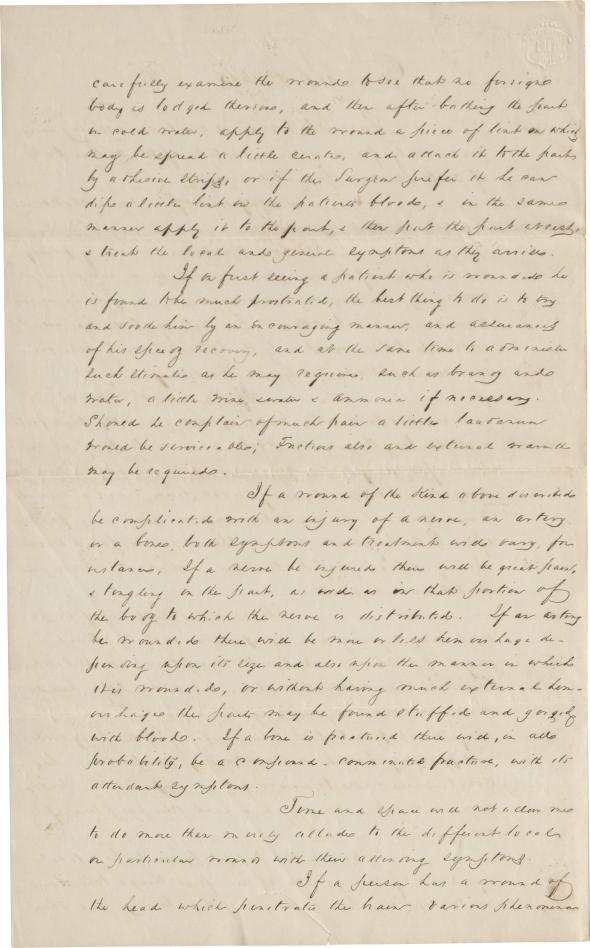 carefully examine the wounds to see that no foreign
body is lodged therein, and then after bathing the part
in cold water, apply to the wound a piece of lint on which
may be spread a little cerate, and attach it to the parts
by adhesive strips, or if the Surgeon prefer it he can
dip a little lint in the patients blood, & in the same
manner apply it to the part, & then put the part at rest,
& treat the local and general symptoms as they arise.
If on first seeing a patient who is wounded he
is found to be much prostrated, the best thing to do is to try
and soothe him by an encouraging manner, and assurances
of his speedy recovery, and at the same time to administer
such stimulus as he may require, such as brandy and
water, a little wine, water & ammonia if necessary.
Should he complain of much pain a little laudanum
would be serviceable; Frictions also and external warmth
may be required.
If a wound of the kind above described
be complicated with an injury of a nerve, an artery
or a bone, both symptoms and treatment will vary, for
instance, If a nerve be injured there will be great pain,
& tingling in the part, as well as in that portion of
the body to which the nerve is distributed. If an artery
be wounded there will be more or less hemorrhage de-
pending upon its size and also upon the manner in which
it is wounded, or without having much external hem-
orrhage the parts may be found stuffed and gorged
with blood. If a bone is fractured there will, in all
probability, be a compound-comminuted fracture, with its
attendant symptoms.
Time and space will not allow me
to do more than merely allude to the different local
or particular wounds with their attending symptoms.
If a person has a wound of
the head which penetrates the brain various phenomena